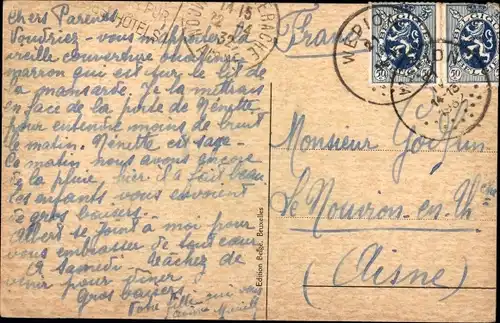 Chers Parents
Voudriez-vous m'apporter
vieille couverture
marron qui est sur le lit de
la mansarde. Je la mettrais
en face de la porte de Nénette
pour entendre moins de bruit
le matin. Nénette est sage.
Ce matin nous avons encore
de la pluie, hier il a fait beau
les enfants vous envoient
de gros baisers.
Albert se joint à moi pour
vous embrasser de tout coeur
A Samedi tachez de
venir pour dîner
Gros baisers
Votre fille qui vous
aime
Edition Belge, Bruxelles
HOTELS
14 15
WEPION
50
50
France
Monsieur
Le Nouvion-en-Th
(Aisne)